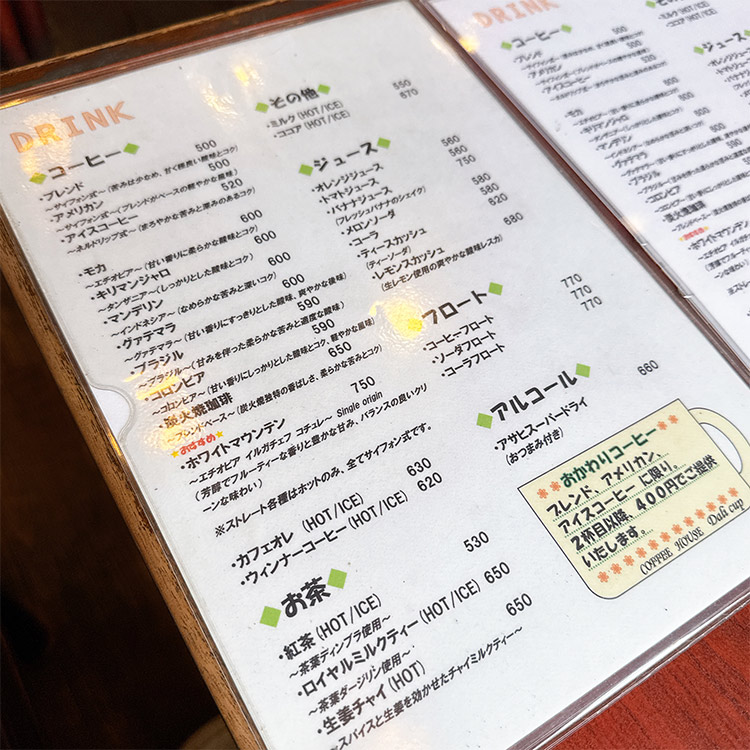 DRINK
コーヒー
・ブレンド 500
～サイフォン式～(苦みは少なめ、甘く程良い酸味とコク)
・アメリカン 500
～サイフォン式～(ブレンドがベースの軽やかな風味)
・アイスコーヒー 520
～ネルドリップ式～(まろやかな苦みと深みのあるコク)
・モカ 600
～エチオピア～(甘い香りに柔らかな酸味とコク)
・キリマンジャロ 600
～タンザニア～(しっかりとした酸味とコク)
・マンデリン 600
～インドネシア～(なめらかな苦みと深いコク)
・グァテマラ 600
～グァテマラ～(甘い香りにすっきりとした酸味、爽やかな後味)
・ブラジル 590
～ブラジル～(甘みを伴った柔らかな苦みと適度な酸味)
・コロンビア 590
～コロンビア～(甘い香りにしっかりとした酸味とコク、軽やかな風味)
・炭火焼珈琲 650
～ブレンドベース～(炭火焼独特の香ばしさ、柔らかな苦みとコク)
★おすすめ★
・ホワイトマウンテン 750
～エチオピア イルガチェフ コチュレ～ Single origin
(芳醇でフルーティーな香りと豊かな甘み、バランスの良いクリ
ーンな味わい)
※ストレート各種はホットのみ、全てサイフォン式です。
・カフェオレ (HOT/ICE) 630
・ウィンナーコーヒー(HOT/ICE) 620
お茶
・紅茶(HOT/ICE) 530
～茶葉ディンブラ使用～
・ロイヤルミルクティー(HOT/ICE) 650
～茶葉ダージリン使用～
・生姜チャイ(HOT) 650
～スパイスと生姜を効かせたチャイミルクティー～
その他
・ミルク(HOT/ICE) 550
・ココア(HOT/ICE) 670
ジュース
・オレンジジュース 560
・トマトジュース 560
・バナナジュース 750
(フレッシュバナナのシェイク)
・メロンソーダ 580
・コーラ 580
・ティースカッシュ 620
(ティーソーダ)
・レモンスカッシュ 680
(生レモン使用の爽やかな酸味レスカ)
フロート
・コーヒーフロート 770
・ソーダフロート 770
・コーラフロート 770
アルコール
・アサヒスーパードライ 660
(おつまみ付き)
おかわりコーヒー
ブレンド、アメリカン、
アイスコーヒー に限り。
2杯目以降、400円でご提供
いたします。
COFFEE HOUSE Dali cup
DRINK
コーヒー
・ブレンド
・アメリカン
・アイスコーヒー
・モカ
・キリマンジャロ
・マンデリン
・グァテマラ
・ブラジル
・コロンビア
・炭火焼珈琲
・ホワイトマウンテン
その他
・ミルク(HOT/ICE)
・ココア(HOT/ICE)
ジュース